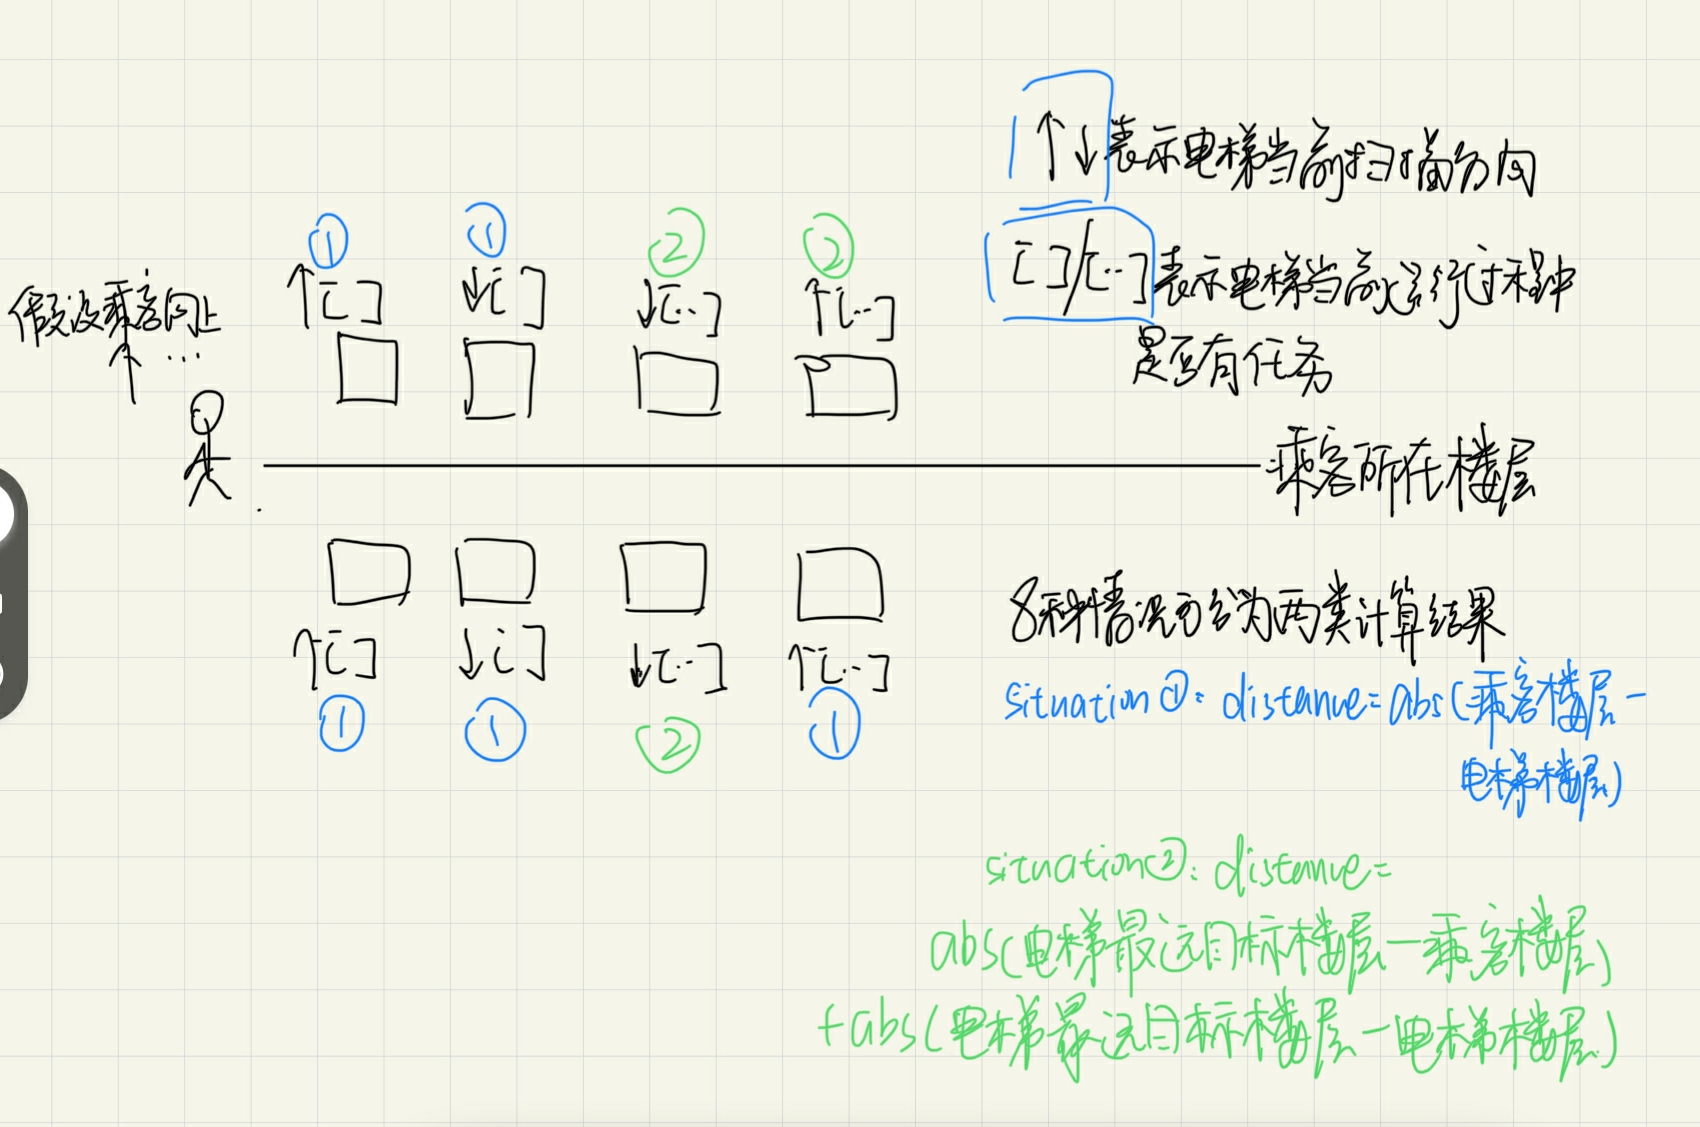 ↑↓表示电梯当前扫描方向
① ① ② ②
↑[ ] ↓[ ] ↓[··] ↑[··]
[ ]/[··]表示电梯当前运行过程中
是否有任务
假设乘客向上
↑ ···
乘客所在楼层
↑[ ] ↓[ ] ↓[··] ↑[··]
① ① ② ①
8种情况可分为两类计算结果
situation①: distance=abs(乘客楼层-
电梯楼层)
situation②: distance=
abs(电梯最远目标楼层-乘客楼层)
+abs(电梯最远目标楼层-电梯楼层)